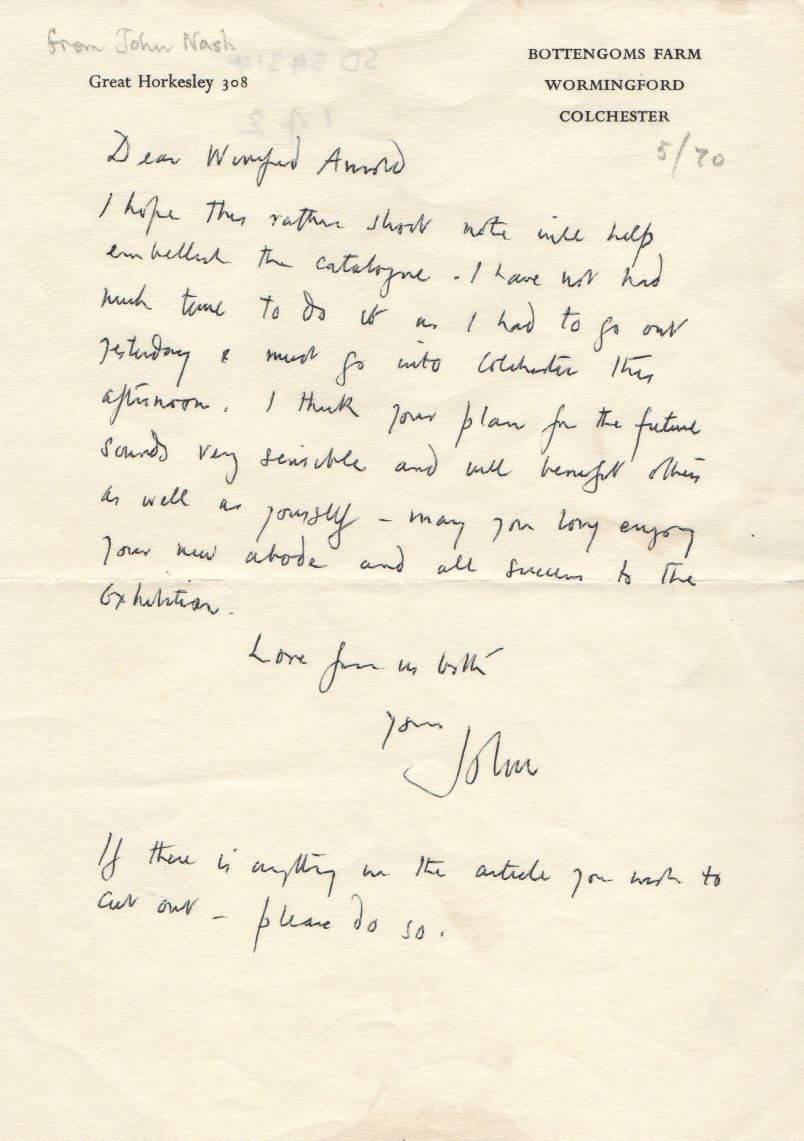 from John Nash
Great Horkesley 308
BOTTENGOMS FARM
WORMINGFORD
COLCHESTER
5/70
Dear Winifred Arnold
I hope this rather short note will help
embellish the catalogue. I have not had
much time to do it as I had to go out
yesterday & must go into Colchester this
afternoon. I think your plan for the future
sounds very sensible and will benefit others
as well as yourself – may you long enjoy
your new abode and all success to the
Exhibition.
Love from us both
yours
John
If there is anything in the article you wish to
cut out – please do so.